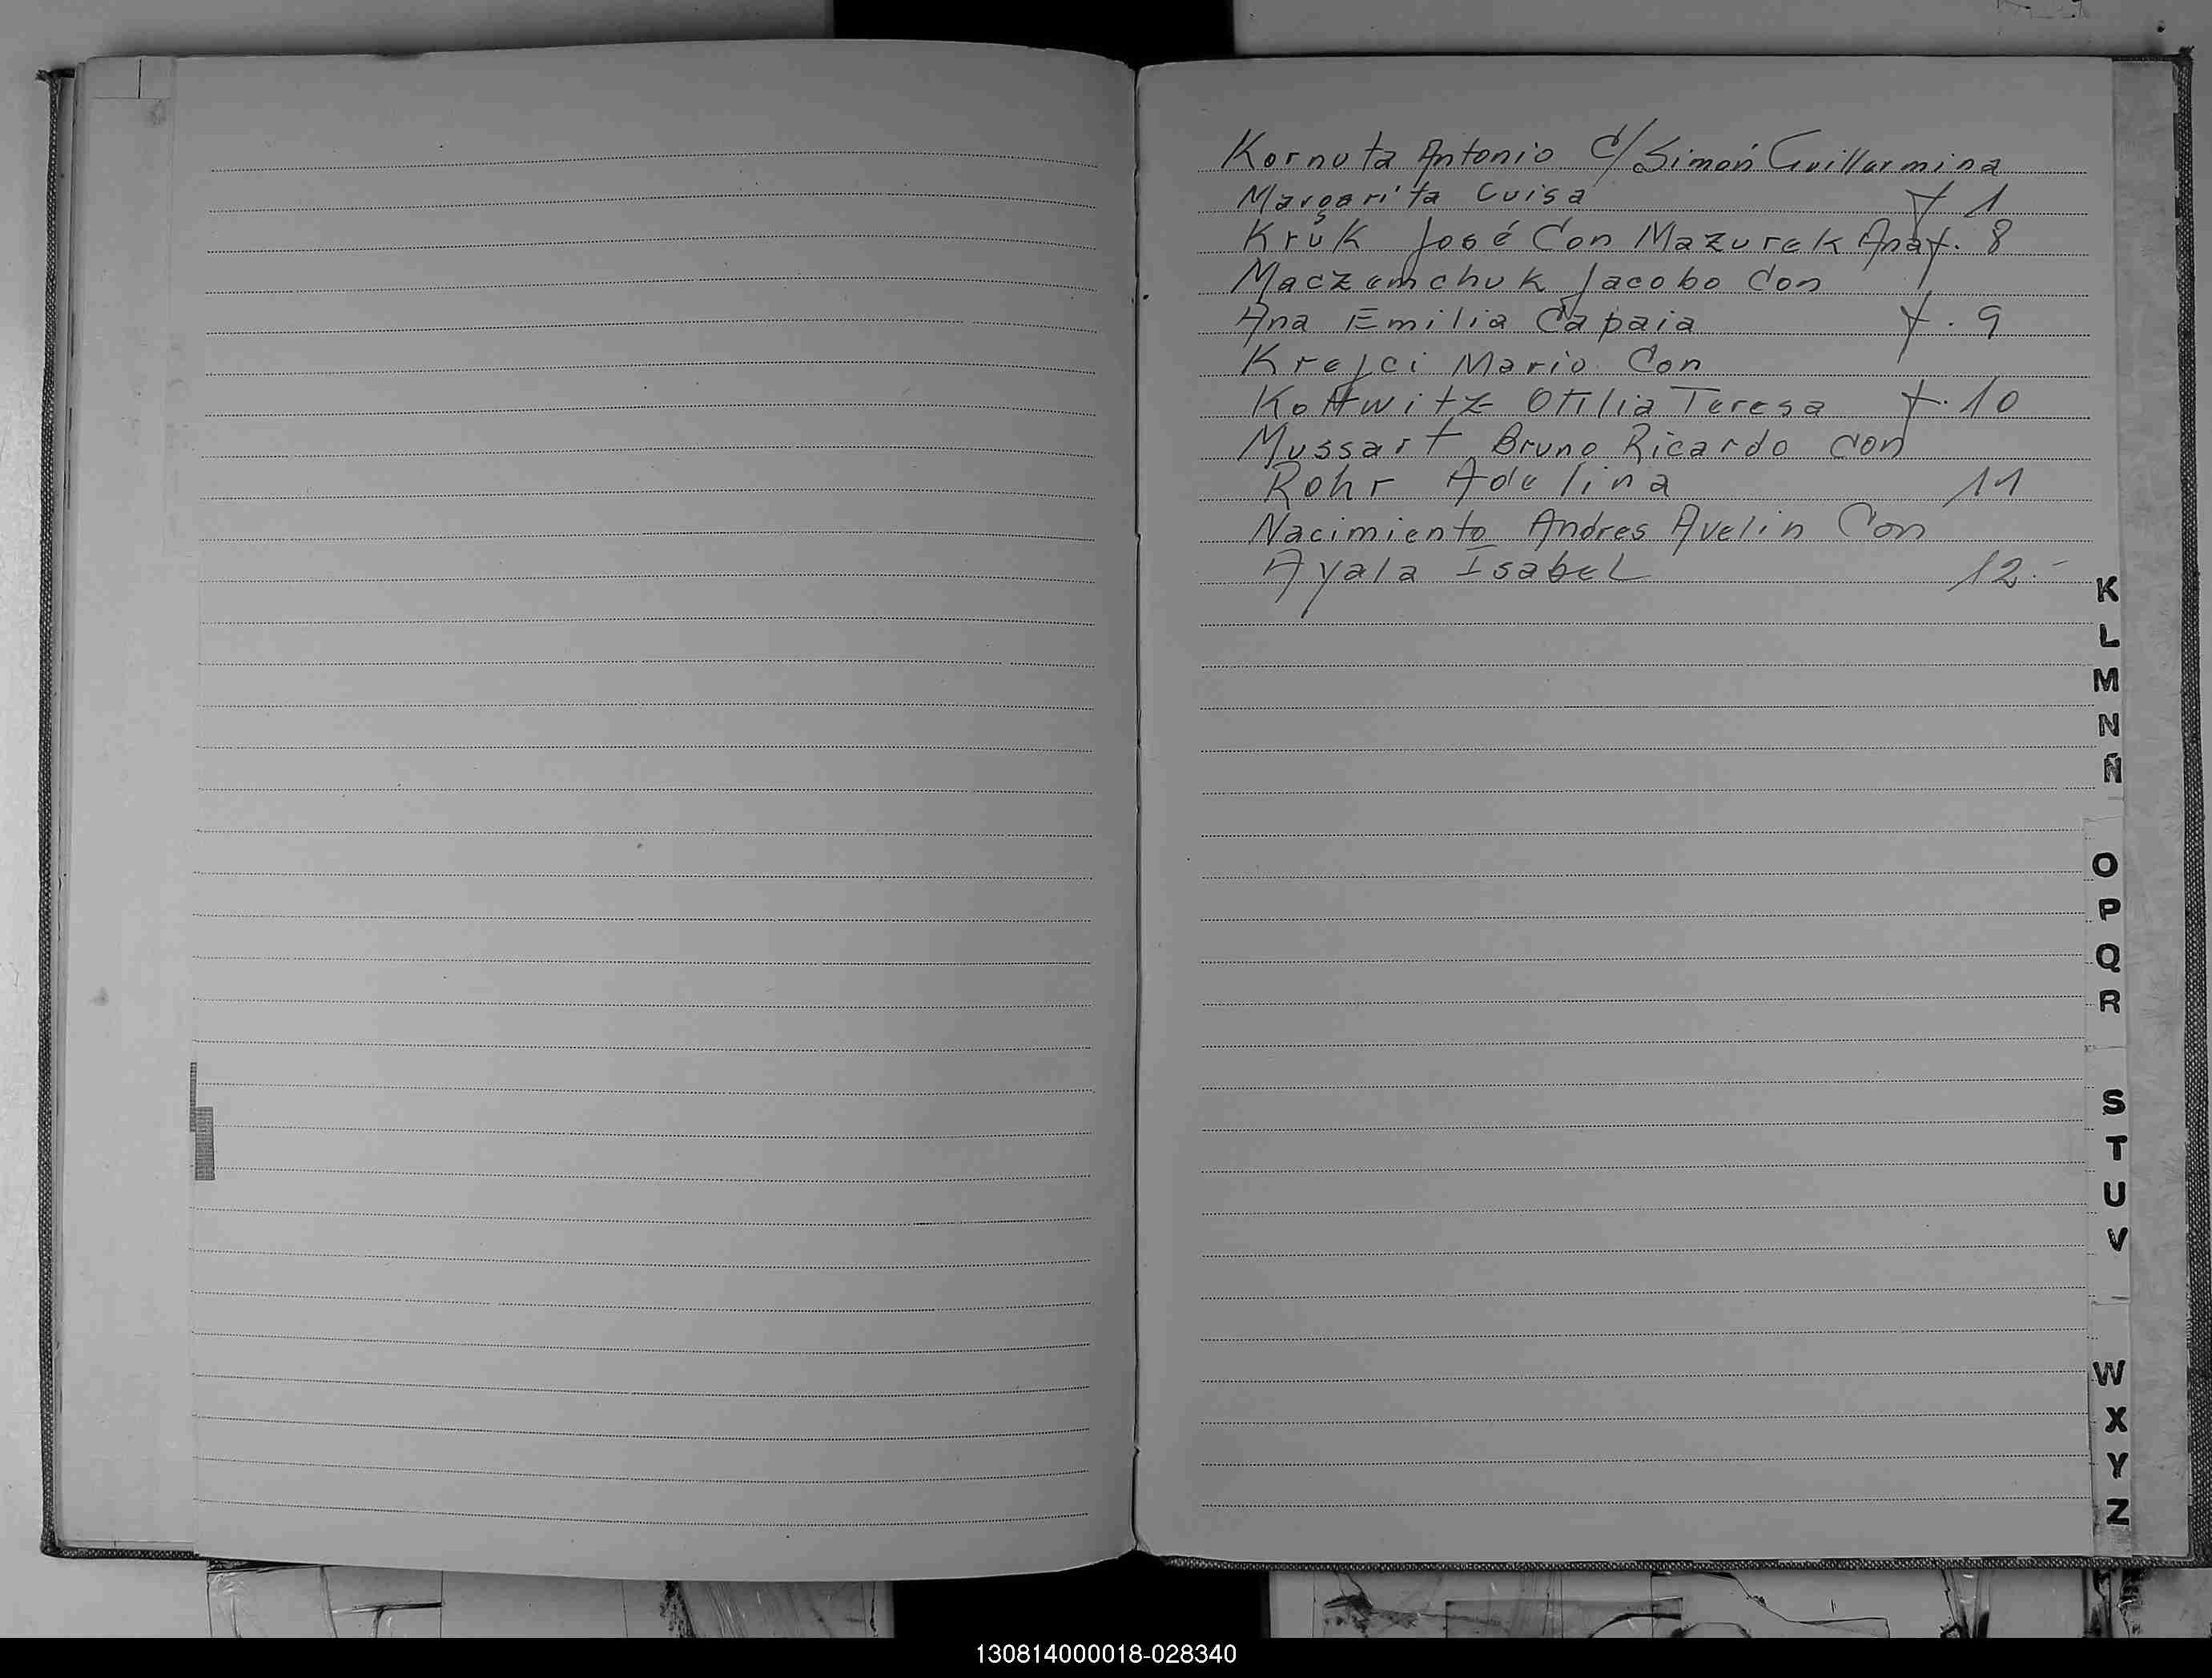 Kornuta Antonio C/ Simón Guillermina
Margarita Luisa f 1
Kruk José Con Mazurek Ana f. 8
Maczemchuk Jacobo Con
Ana Emilia Capaia f. 9
Krejci Mario Con
Kottwitz Otilia Teresa f. 10
Mussart Bruno Ricardo Con
Rohr Adelina 11
Nacimiento Andres Avelin Con
Ayala Isabel 12.-
K
L
M
N
Ñ
O
P
Q
R
S
T
U
V
W
X
Y
Z
130814000018-028340